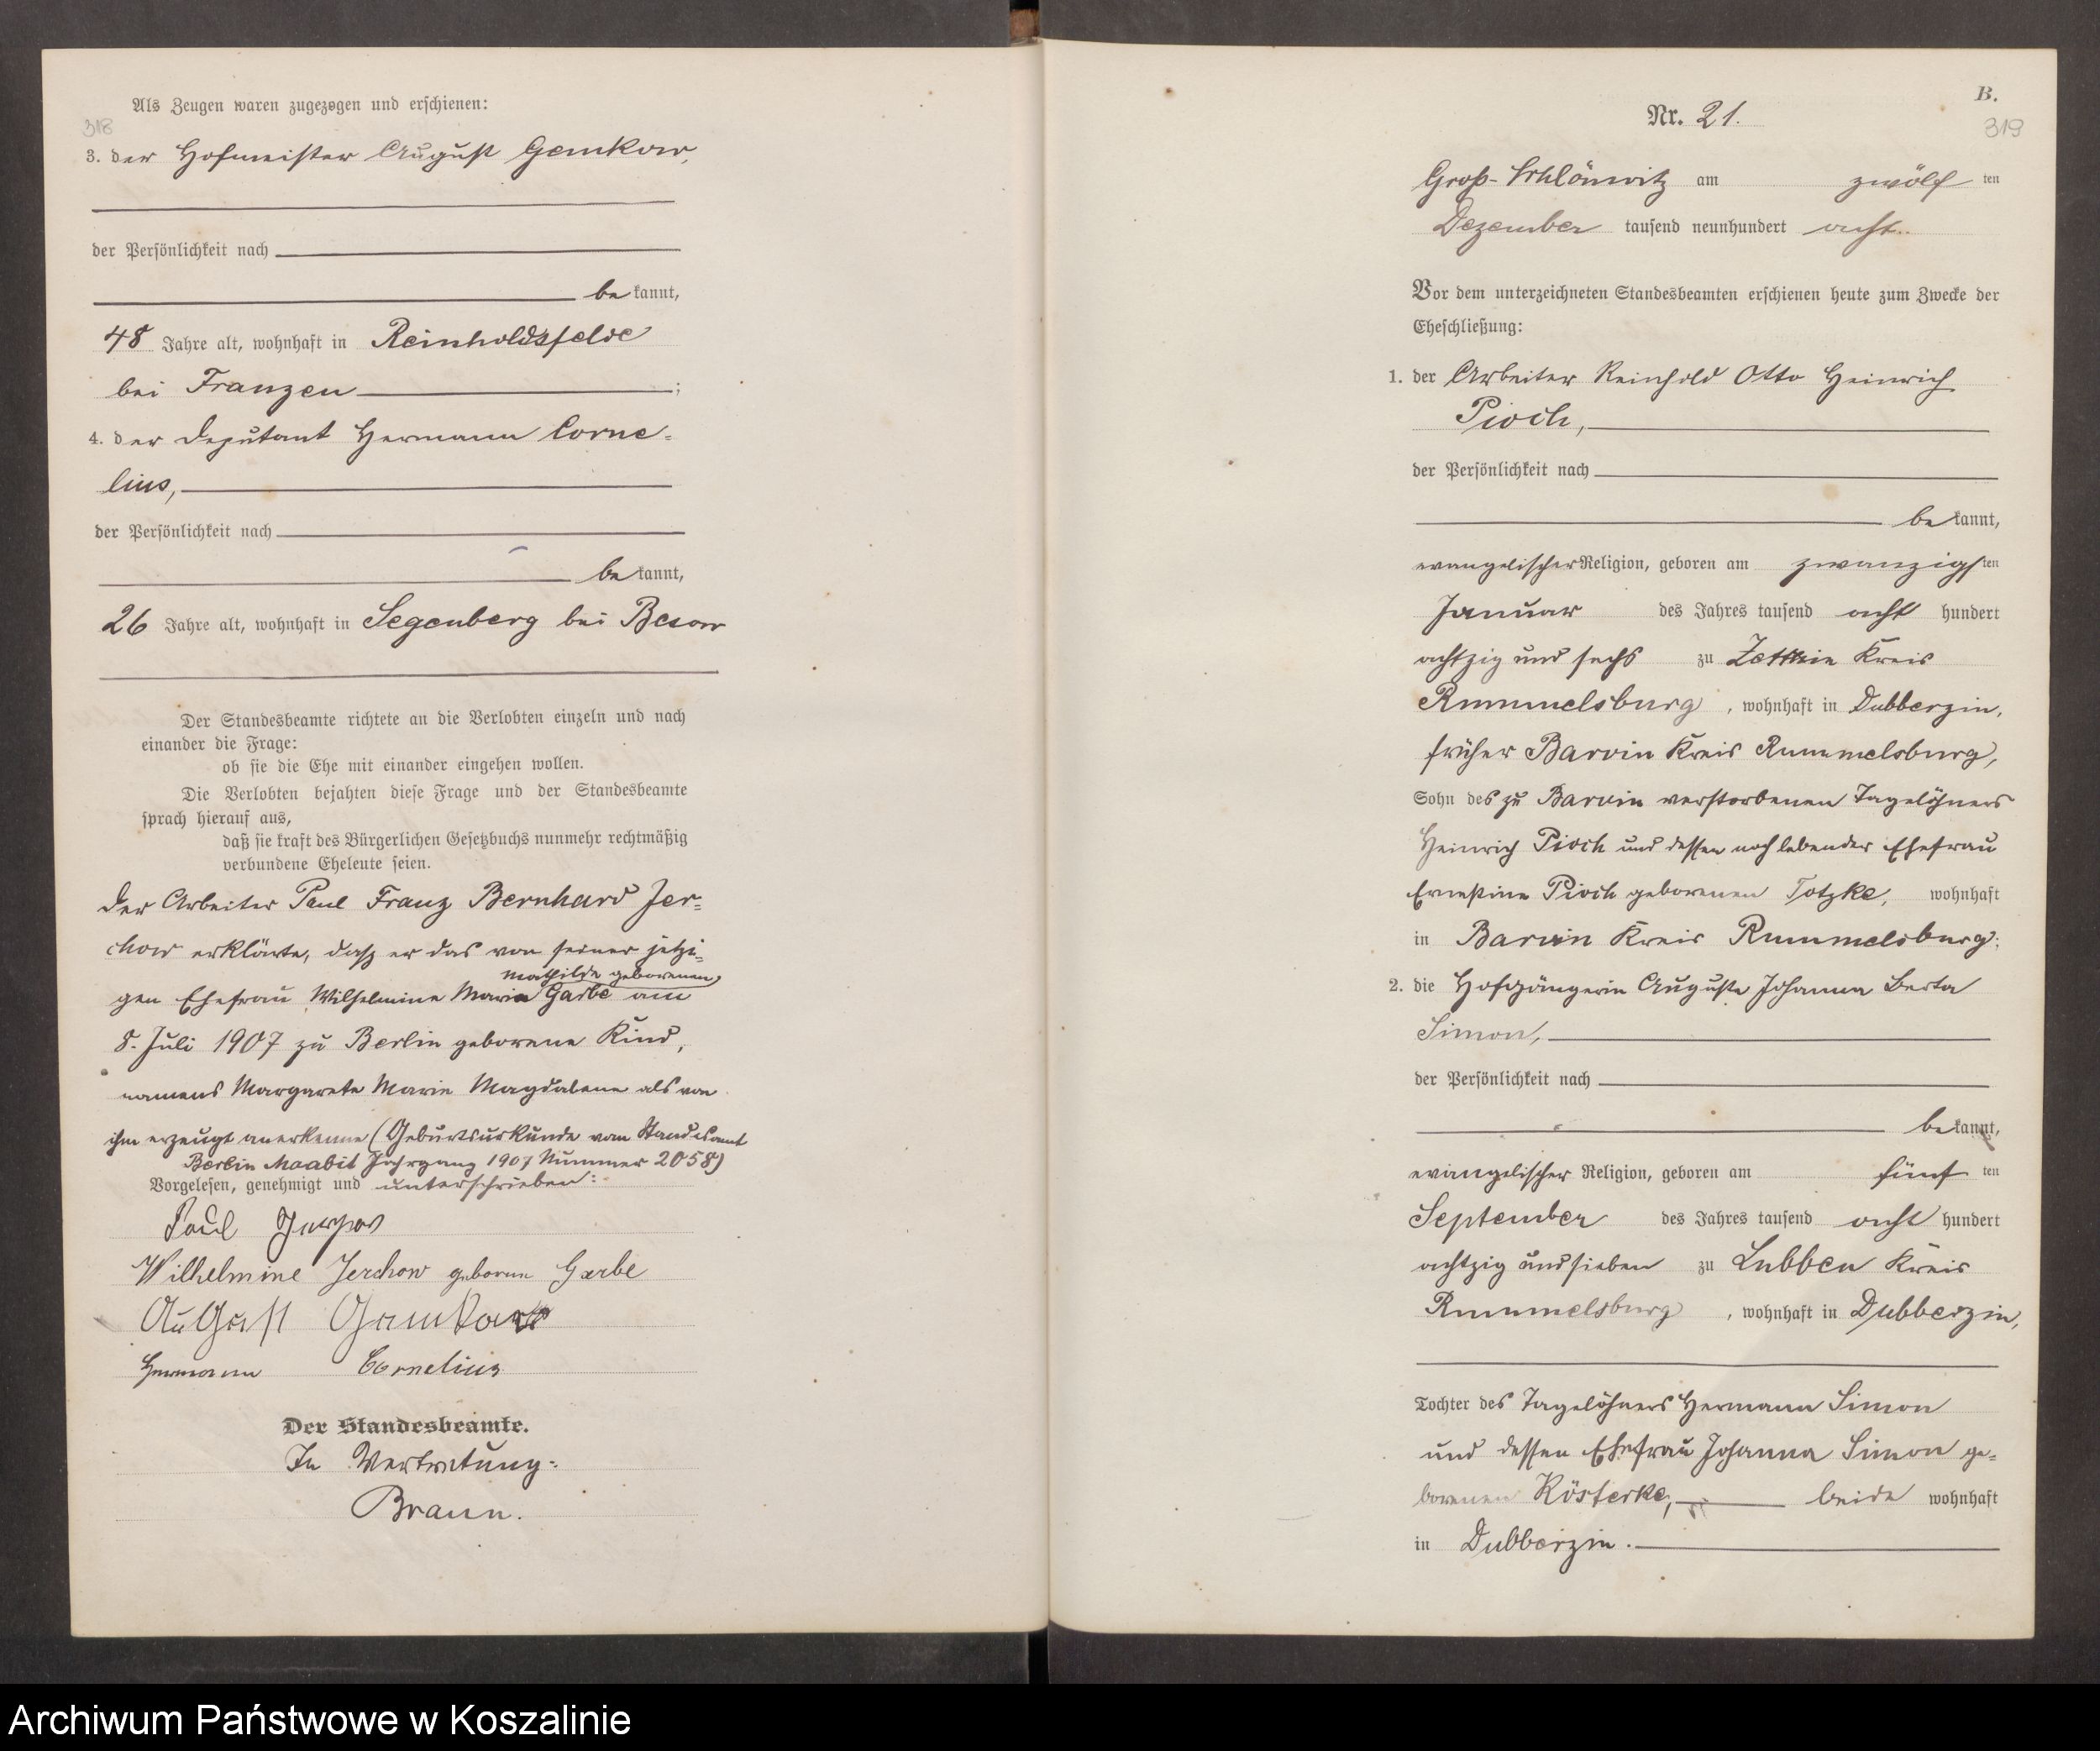 Als Zeugen waren zugezogen und erschienen:
318
3. der Hofmeister August Gemkow,
der Persönlichkeit nach
bekannt,
48 Jahre alt, wohnhaft in Reinholdsfelde
bei Franzen ;
4. der Deputant Hermann Corne=
lius,
der Persönlichkeit nach
bekannt,
26 Jahre alt, wohnhaft in Segenberg bei Besow
Der Standesbeamte richtete an die Verlobten einzeln und nach
einander die Frage:
ob sie die Ehe mit einander eingehen wollen.
Die Verlobten bejahten diese Frage und der Standesbeamte
sprach hierauf aus,
daß sie kraft des Bürgerlichen Gesetzbuchs nunmehr rechtmäßig
verbundene Eheleute seien.
Der Arbeiter Paul Franz Bernhard Jer=
chow erklärte, daß er das von seiner jetzi=
Mathilde geborenen
gen Ehefrau Wilhelmine Marie Garbe am
8. Juli 1907 zu Berlin geborene Kind,
namens Margarete Marie Magdalene als von
ihm erzeugt anerkenne (Geburtsurkunde vom Standesamt
Berlin Moabit Jahrgang 1907 Nummer 2058)
Vorgelesen, genehmigt und unterschrieben:
Paul Jerchow
Wilhelmine Jerchow geborene Garbe
August Gemkow
Hermann Cornelius
Der Standesbeamte.
In Vertretung:
Braun.
B.
319
Nr. 21.
Groß-Schlönwitz am zwölf ten
Dezember tausend neunhundert acht.
Vor dem unterzeichneten Standesbeamten erschienen heute zum Zwecke der
Eheschließung:
1. der Arbeiter Reinhold Otto Heinrich
Pioch,
der Persönlichkeit nach
bekannt,
evangelischer Religion, geboren am zwanzigsten
Januar des Jahres tausend acht hundert
achtzig und sechs zu Zettin Kreis
Rummelsburg , wohnhaft in Dubberzin,
früher Barvin Kreis Rummelsburg,
Sohn des zu Barvin verstorbenen Tagelöhners
Heinrich Pioch und dessen noch lebender Ehefrau
Ernestine Pioch geborenen Totzke, wohnhaft
in Barvin Kreis Rummelsburg;
2. die Hofgängerin Auguste Johanna Berta
Simon,
der Persönlichkeit nach
bekannt,
evangelischer Religion, geboren am fünf ten
September des Jahres tausend acht hundert
achtzig und sieben zu Lubben Kreis
Rummelsburg , wohnhaft in Dubberzin,
Tochter des Tagelöhners Hermann Simon
und dessen Ehefrau Johanna Simon ge=
borenen Rösterke, beide wohnhaft
in Dubberzin.
Archiwum Państwowe w Koszalinie